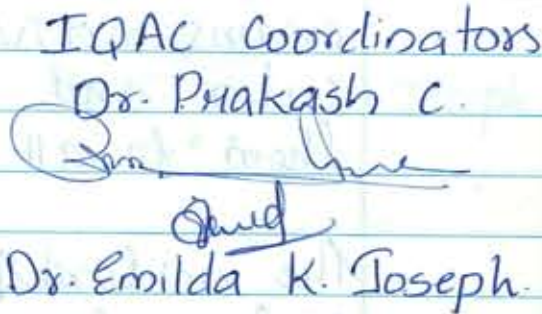 IQAC Coordinators
Dr. Prakash C.
Dr. Emilda K. Joseph.